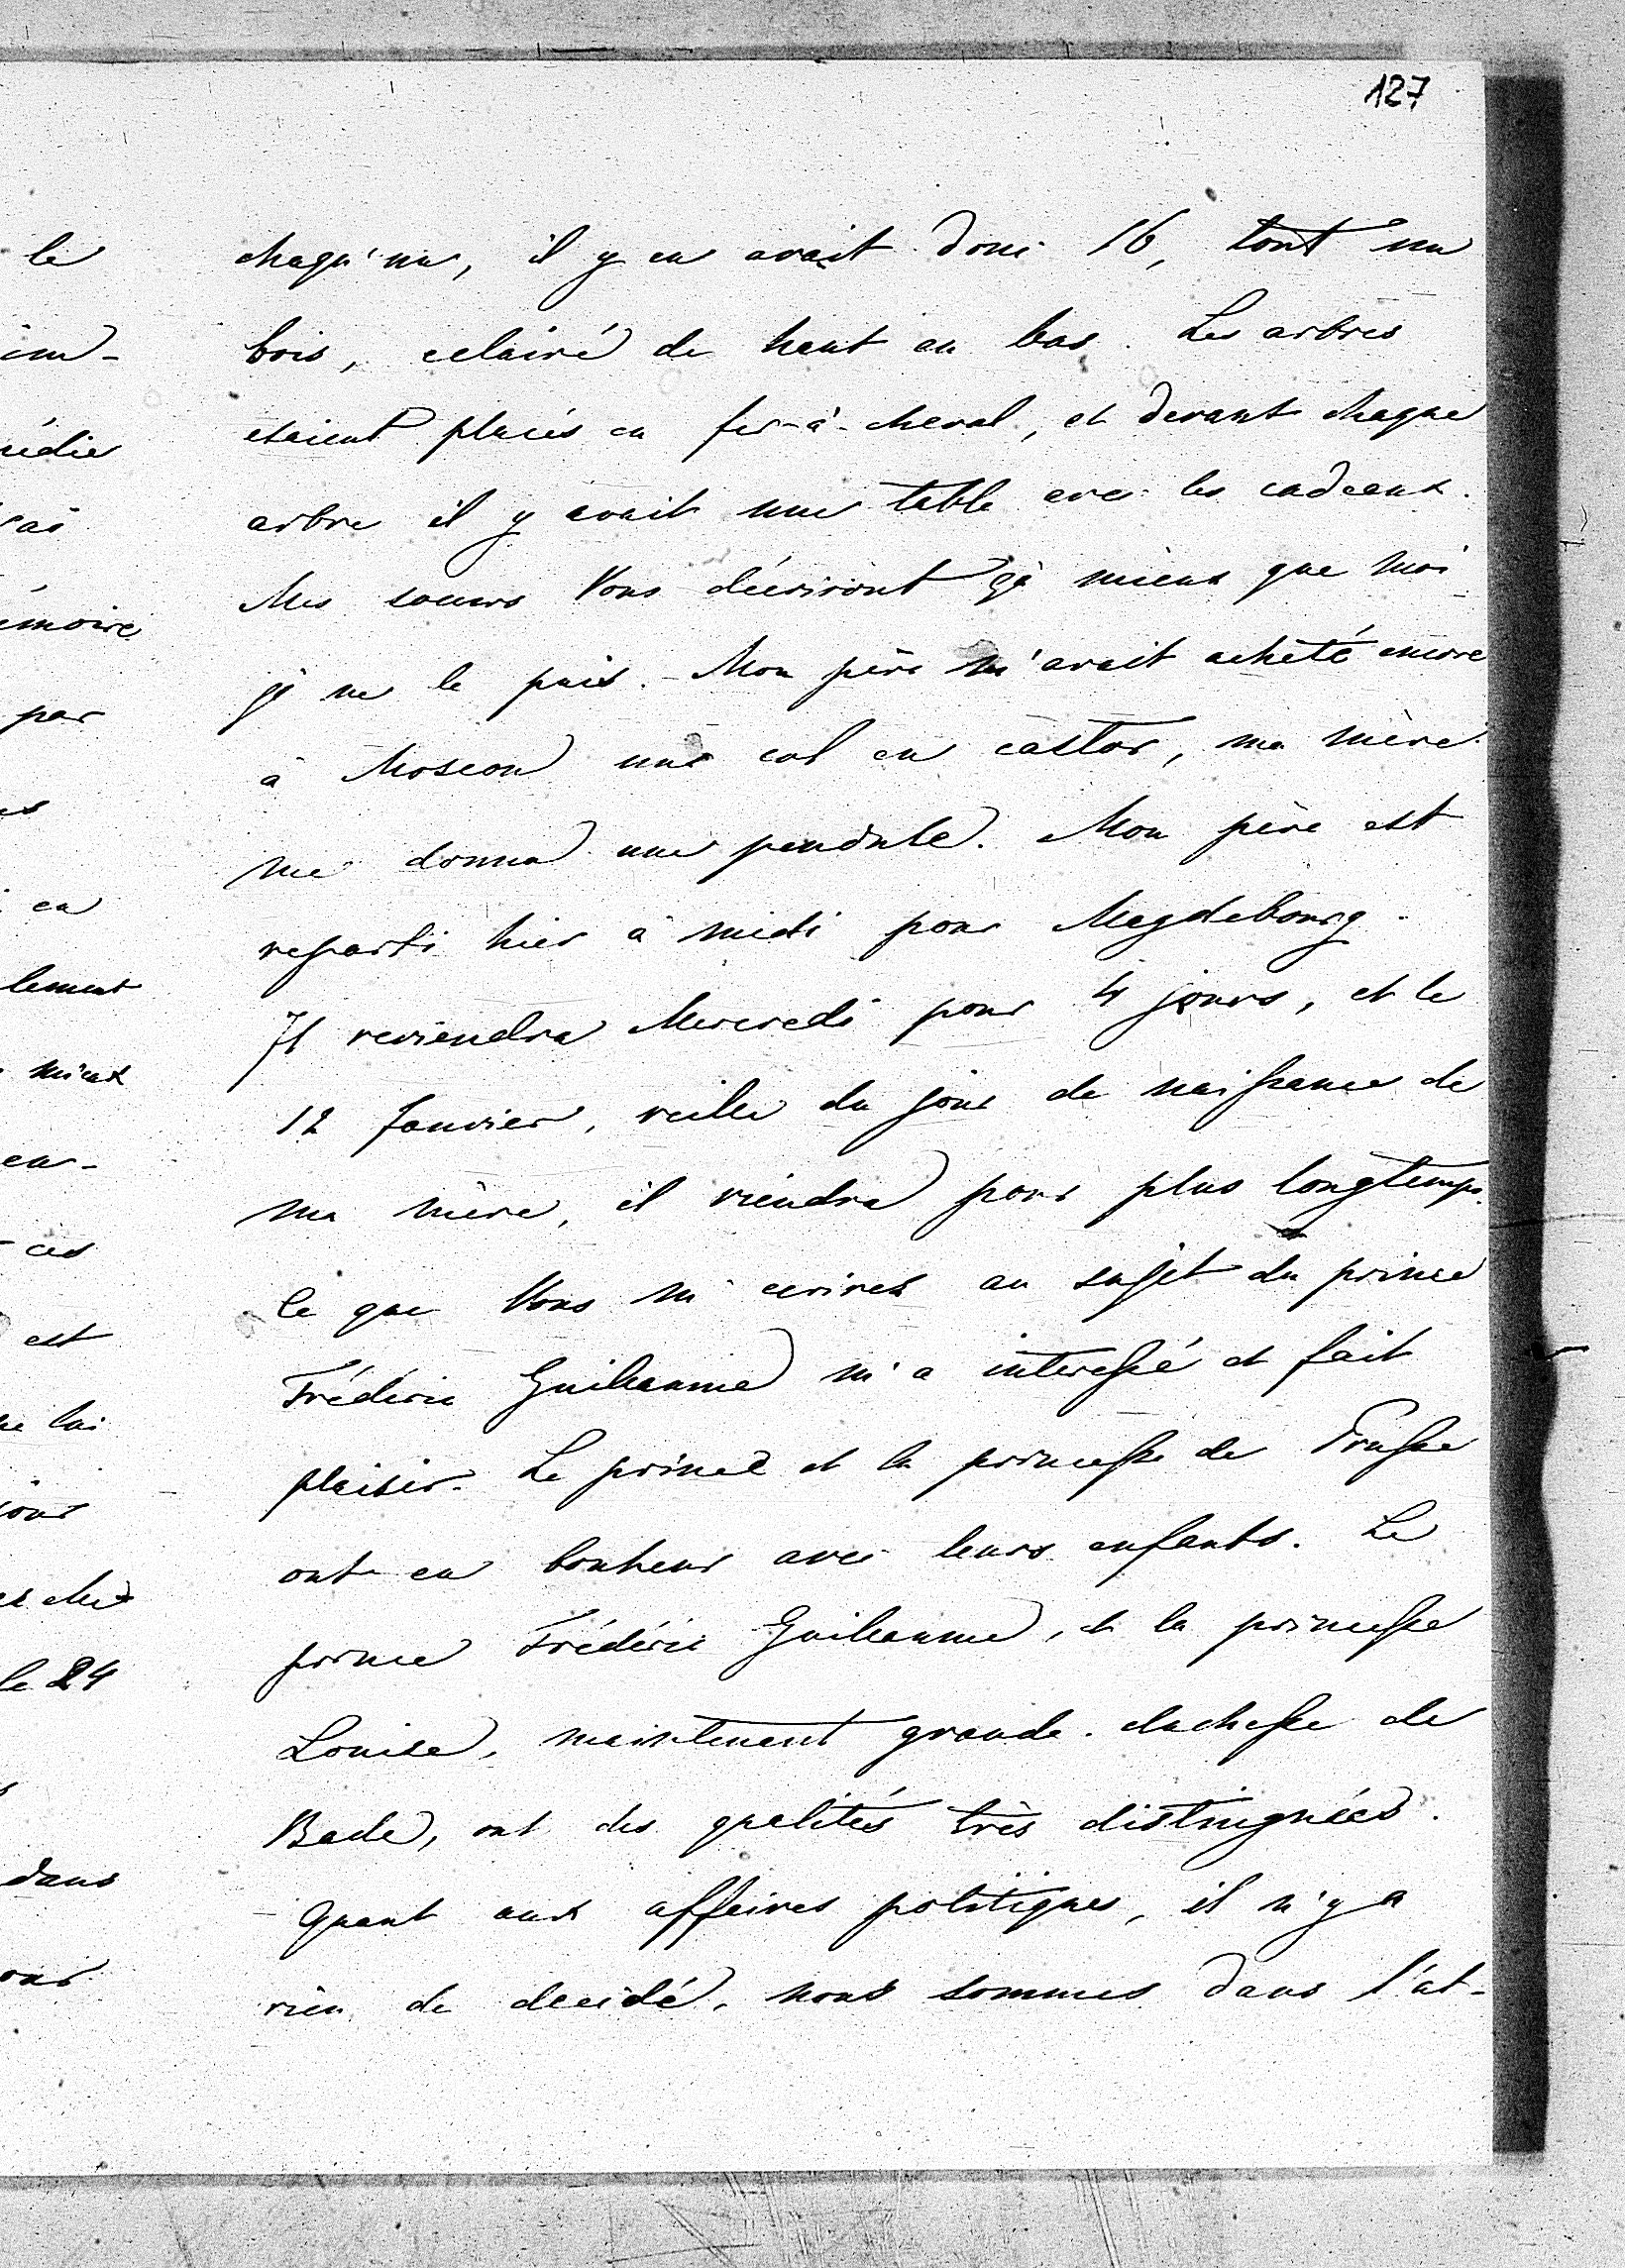 127
chaqu'un, il y en avait donc 16, tout un
bois, eclairé de haut en bas. Les arbres
etaient placés en fer-à-cheval, et devant chaque
arbre il y avait une table avec les cadeaux.
Mes soeurs Vous décriront çà mieux que moi
je ne le puis. Mon père m'avait acheté encore
à Moscou une col en castor, ma mère
me donna une pendule. Mon père est
reparti hier à midi pour Magdebourg.
Il reviendra Mercredi pour 4 jours, et le
12 Janvier, veille du jour de naissance de
ma mère, il viendra pour plus longtemps.
Ce que Vous m'ecrivez au sujet du prince
Frédéric Guilleaume m'a interessé et fait
plaisir. Le prince et la princesse de Prusse
ont eu bonheur avec leurs enfants. Le
prince Frédéric Guilleaume, et la princesse
Louise, maintenant grande-duchesse de
Bade, ont des qualités très distinguées.
Quant aux affaires politiques, il n'y a
rien de decidé, nous sommes dans l'at-
le
médie
mémoire
par
en
lement
mieux
en-
ces
est
lui
le 24
dans